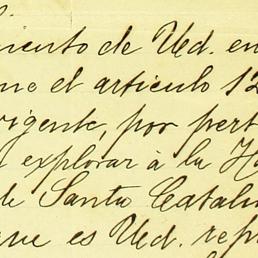 miento de Ud. en
ne el articulo 12
vigente, por pert
explorar à la Ha
de Santa Catali
que es Ud. repr